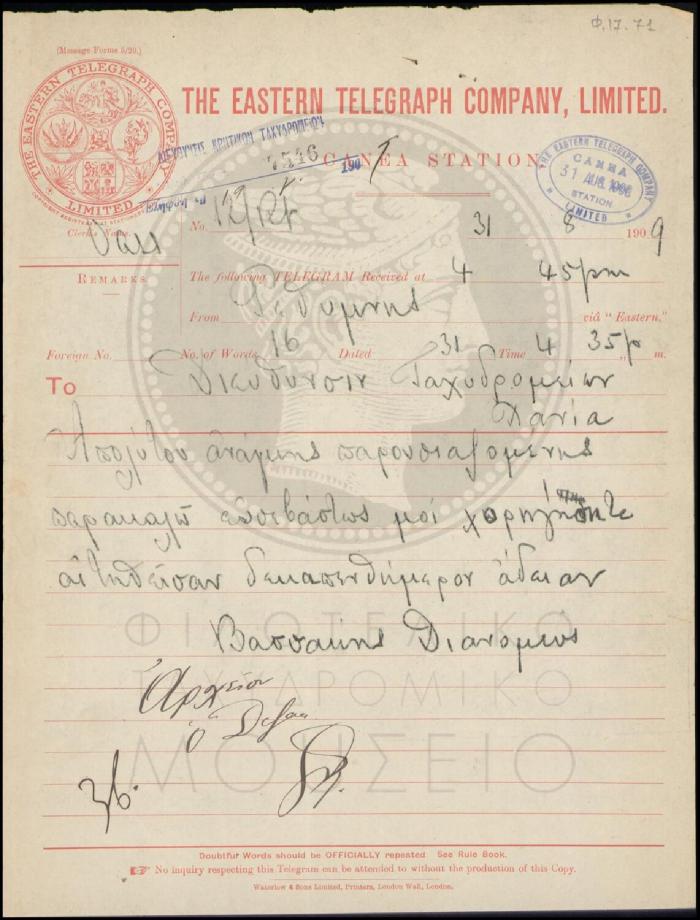 Φ.17.71
(Message Forms 5/20.)
THE EASTERN TELEGRAPH COMPANY
LIMITED
THE EASTERN TELEGRAPH COMPANY, LIMITED.
ΔΙΕΥΘΥΝΣΙΣ ΚΡΗΤΙΚΩΝ ΤΑΧΥΔΡΟΜΕΙΩΝ
7546
190
CANEA STATION
THE EASTERN TELEGRAPH COMPANY
CANEA
31 AUG
STATION
LIMITED
Clerk's Name.
No.
31 8 1909
REMARKS.
The following TELEGRAM Received at 4 45 pm
From Ρεθύμνης viâ "Eastern."
Foreign No. No. of Words 16 Dated 31 Time 4 35 p m.
To Διεύθυνσιν Ταχυδρομείων
Χανία
Απολύτου ανάγκης παρουσιαζομένης
παρακαλώ ευσεβάστως μοί χορηγήσητε
αιτηθείσαν δεκαπενθήμερον άδειαν
Διανομεύς
Αρχείον
ΦΙΛΟΤΕΛΙΚΟ
ΤΑΧΥΔΡΟΜΙΚΟ
ΜΟΥΣΕΙΟ
Doubtful Words should be OFFICIALLY repeated. See Rule Book.
No inquiry respecting this Telegram can be attended to without the production of this Copy.
Waterlow & Sons Limited, Printers, London Wall, London.